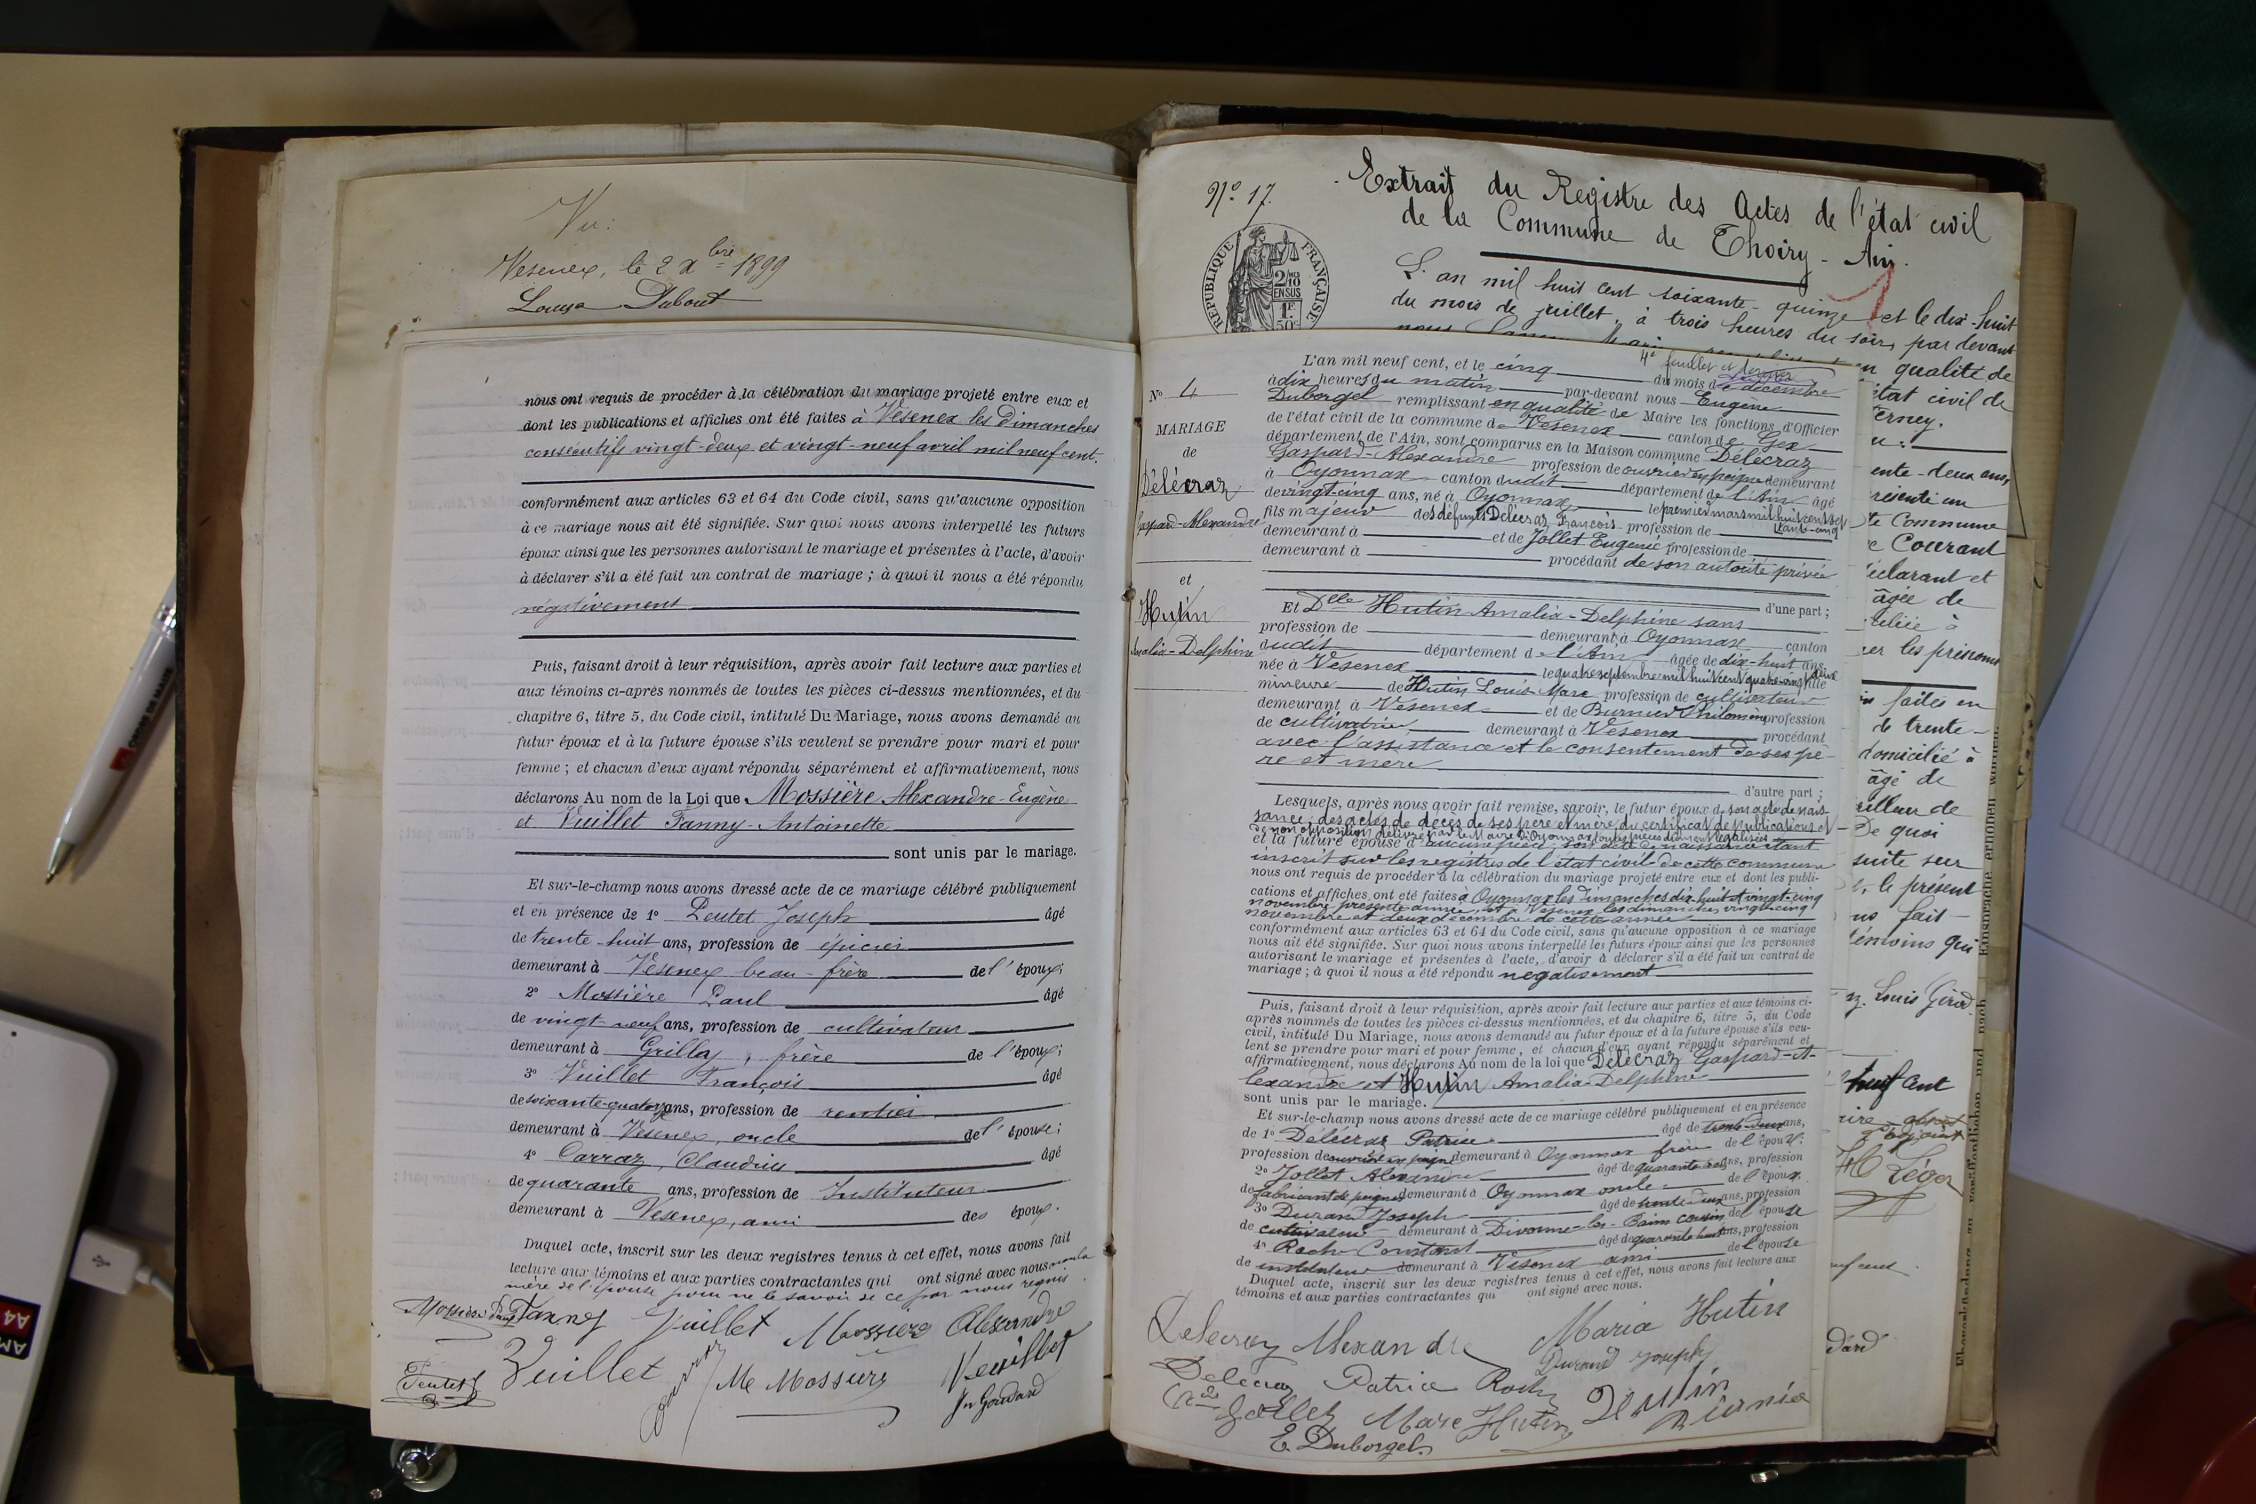 Vu:
Vesenex, le 2 Xbre 1899
Louga Dubout
nous ont requis de procéder à la célébration du mariage projeté entre eux et
dont les publications et affiches ont été faites à Vesenex les Dimanches
consécutifs vingt-deux et vingt-neuf avril mil neuf cent.
conformément aux articles 63 et 64 du Code civil, sans qu'aucune opposition
à ce mariage nous ait été signifiée. Sur quoi nous avons interpellé les futurs
époux ainsi que les personnes autorisant le mariage et présentes à l'acte, d'avoir
à déclarer s'il a été fait un contrat de mariage ; à quoi il nous a été répondu
négativement
Puis, faisant droit à leur réquisition, après avoir fait lecture aux parties et
aux témoins ci-après nommés de toutes les pièces ci-dessus mentionnées, et du
chapitre 6, titre 5, du Code civil, intitulé Du Mariage, nous avons demandé au
futur époux et à la future épouse s'ils veulent se prendre pour mari et pour
femme ; et chacun d'eux ayant répondu séparément et affirmativement, nous
déclarons Au nom de la Loi que Mossière Alexandre-Eugène
et Vuillet Fanny-Antoinette
sont unis par le mariage.
Et sur-le-champ nous avons dressé acte de ce mariage célébré publiquement
et en présence de 1º Peutet Joseph âgé
de trente-huit ans, profession de épicier
demeurant à Vesenex beau-frère de l' époux;
2º Mossière Paul âgé
de vingt neuf ans, profession de cultivateur
demeurant à Grilly, frère de l'époux;
3º Vuillet François âgé
de soixante-quatorze ans, profession de rentier
demeurant à Vesenex, oncle de l' épouse;
4º Carraz, Claudius âgé
de quarante ans, profession de Instituteur
demeurant à Vesenex, ami des époux.
Duquel acte, inscrit sur les deux registres tenus à cet effet, nous avons fait
lecture aux témoins et aux parties contractantes qui ont signé avec nous non la
mère de l'épouse pour ne le savoir de ce par nous requis
Fanny Vuillet Mossière Alexandre
Peutet J Vuillet Carraz Me Mossière Vuillet
Jn Goudard
Nº 17.
Extrait du Registre des Actes de l'état civil
de la Commune de Thoiry - Ain.
RÉPUBLIQUE FRANÇAISE
2/10
EN SUS
1F
50c
L'an mil huit cent soixante-quinze et le dix-huit
du mois de juillet, à trois heures du soir, par devant
en qualité de
état civil de
4e feuillet et dernier
Nº 4
MARIAGE
de
Délécraz
Gaspard-Alexandre
et
Hutin
Amalia-Delphine
L'an mil neuf cent, et le cinq du mois de décembre
à dix heures du matin par-devant nous Eugène
Duborgel remplissant en qualité de Maire les fonctions d'Officier
de l'état civil de la commune de Vesenex canton de Gex
département de l'Ain, sont comparus en la Maison commune Délécraz
Gaspard-Alexandre profession de ouvrier en peigne demeurant
à Oyonnax canton dudit département de l'Ain âgé
de vingt-cinq ans, né à Oyonnax le premier mars mil huit cent soixante-cinq
fils majeur des défunts Délécraz François profession de
demeurant à et de Jollet Eugénie profession de
demeurant à procédant de son autorité privée
d'une part ;
Et Delle Hutin Amalia-Delphine sans
profession de demeurant à Oyonnax canton
dudit département de l'Ain âgée de dix-huit ans
née à Vesenex le quatre septembre mil huit cent quatre-vingt-deux fille
mineure de Hutin Louis-Marc profession de cultivateur
demeurant à Vesenex et de Burnier Philomène profession
de cultivatrice, demeurant à Vesenex procédant
avec l'assistance et le consentement de ses pè-
re et mère
d'autre part ;
Lesquels, après nous avoir fait remise, savoir, le futur époux de son acte de nais-
sance, des actes de décès de ses père et mère, du certificat de publications et
de non opposition délivré par le Maire d'Oyonnax, toutes pièces dûment légalisées
et la future épouse d'aucune pièce, son acte de naissance étant
inscrit sur les registres de l'état civil de cette commune
nous ont requis de procéder à la célébration du mariage projeté entre eux et dont les publi-
cations et affiches ont été faites à Oyonnax les Dimanches dix-huit et vingt-cinq
novembre présente année, et à Vesenex les dimanches vingt-cinq
novembre et deux décembre de cette année
conformément aux articles 63 et 64 du Code civil, sans qu'aucune opposition à ce mariage
nous ait été signifiée. Sur quoi nous avons interpellé les futurs époux ainsi que les personnes
autorisant le mariage et présentes à l'acte, d'avoir à déclarer s'il a été fait un contrat de
mariage ; à quoi il nous a été répondu négativement
Puis, faisant droit à leur réquisition, après avoir fait lecture aux parties et aux témoins ci-
après nommés de toutes les pièces ci-dessus mentionnées, et du chapitre 6, titre 5, du Code
civil, intitulé Du Mariage, nous avons demandé au futur époux et à la future épouse s'ils veu-
lent se prendre pour mari et pour femme, et chacun d'eux ayant répondu séparément et
affirmativement, nous déclarons Au nom de la loi que Délécraz Gaspard-A-
lexandre et Hutin Amalia-Delphine
sont unis par le mariage.
Et sur-le-champ nous avons dressé acte de ce mariage célébré publiquement et en présence
de 1º Délécraz Patrice âgé de trente-deux ans,
profession de ouvrier en peigne demeurant à Oyonnax frère de l'époux;
2º Jollet Alexandre âgé de quarante ans, profession
de fabricant de peignes demeurant à Oyonnax oncle de l'époux.
3º Durand Joseph âgé de trente-deux ans, profession
de cultivateur demeurant à Divonne-les-Bains cousin de l'épouse
4º Roch Constant âgé de quarante huit ans, profession
de instituteur demeurant à Vesenex ami de l'épouse
Duquel acte, inscrit sur les deux registres tenus à cet effet, nous avons fait lecture aux
témoins et aux parties contractantes qui ont signé avec nous.
Delécraz Alexandre Maria Hutin
Durand Joseph
Delécraz Patrice Roch
Jollet Marc Hutin
E. Duborgel
erney.
ente-deux ans,
résenté un
te Commune
e Courant
éclarant et
âgée de
à
er les prénoms
faites en
de trente-
domicilié à
âgé de
De quoi
suite sur
le présent
fait
témoins qui
Louis Girod.
neuf cent
H Léger